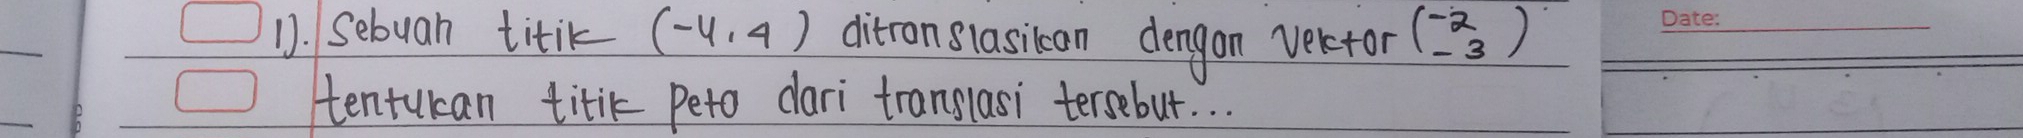 1). Sebuah titik (-4,4) ditranslasikan dengan vektor (-2 -3)
tentukan titik peta dari translasi tersebut...
Date: